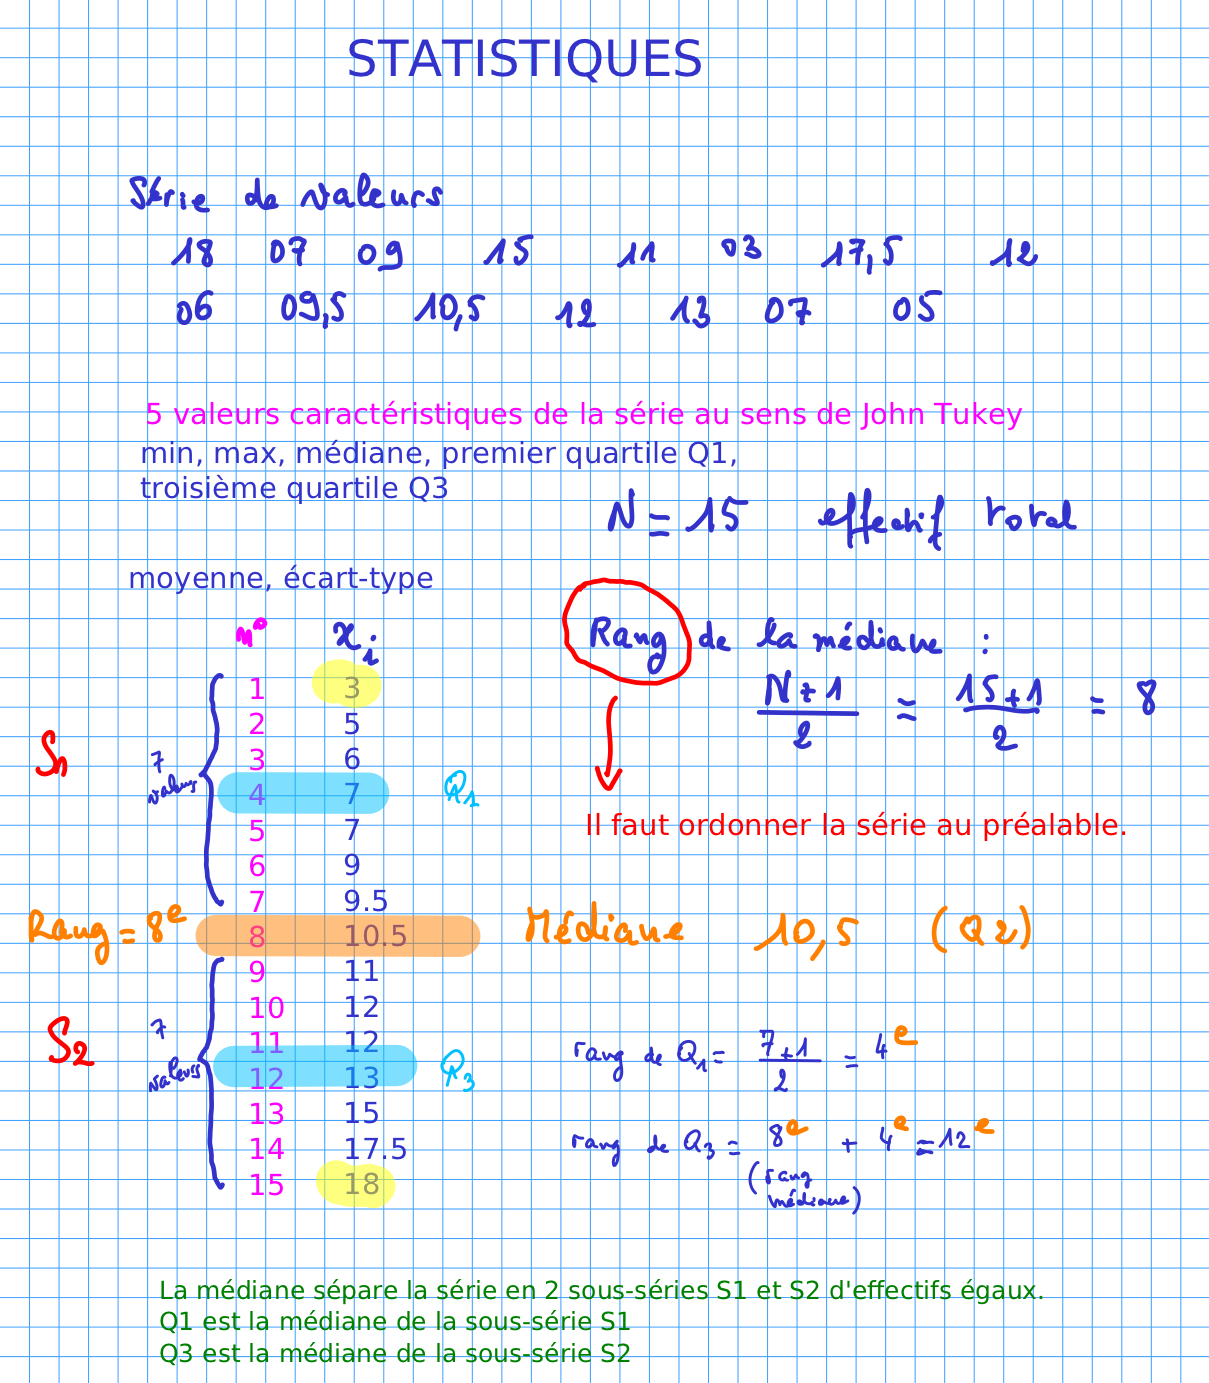 STATISTIQUES
Série de valeurs
18 07 09 15 11 03 17,5 12
06 09,5 10,5 12 13 07 05
5 valeurs caractéristiques de la série au sens de John Tukey
min, max, médiane, premier quartile Q1,
troisième quartile Q3
N = 15 effectif total
moyenne, écart-type
n° xi
Rang de la médiane :
N+1 / 2 = 15+1 / 2 = 8
Il faut ordonner la série au préalable.
1 3
2 5
3 6
4 7 Q1
5 7
6 9
7 9.5
S1 7 valeurs
Rang = 8e 8 10.5 Médiane 10,5 (Q2)
9 11
10 12
11 12
12 13 Q3
13 15
14 17.5
15 18
S2 7 valeurs
rang de Q1 = 7+1 / 2 = 4e
rang de Q3 = 8e + 4e = 12e
(rang
médiane)
La médiane sépare la série en 2 sous-séries S1 et S2 d'effectifs égaux.
Q1 est la médiane de la sous-série S1
Q3 est la médiane de la sous-série S2